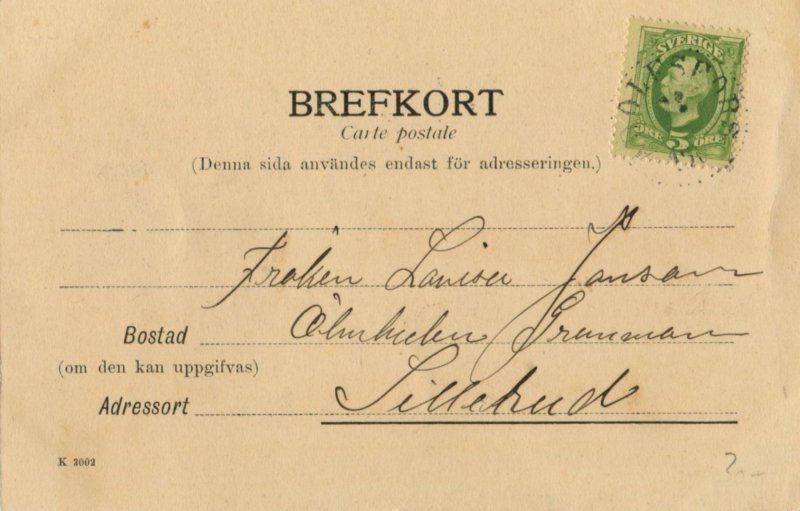 SVERIGE
ÖRE 5 ÖRE
BREFKORT
Carte postale
(Denna sida användes endast för adresseringen.)
Fröken Lovisa Jansson
Bostad
(om den kan uppgifvas)
Adressort Sillerud
K 2002